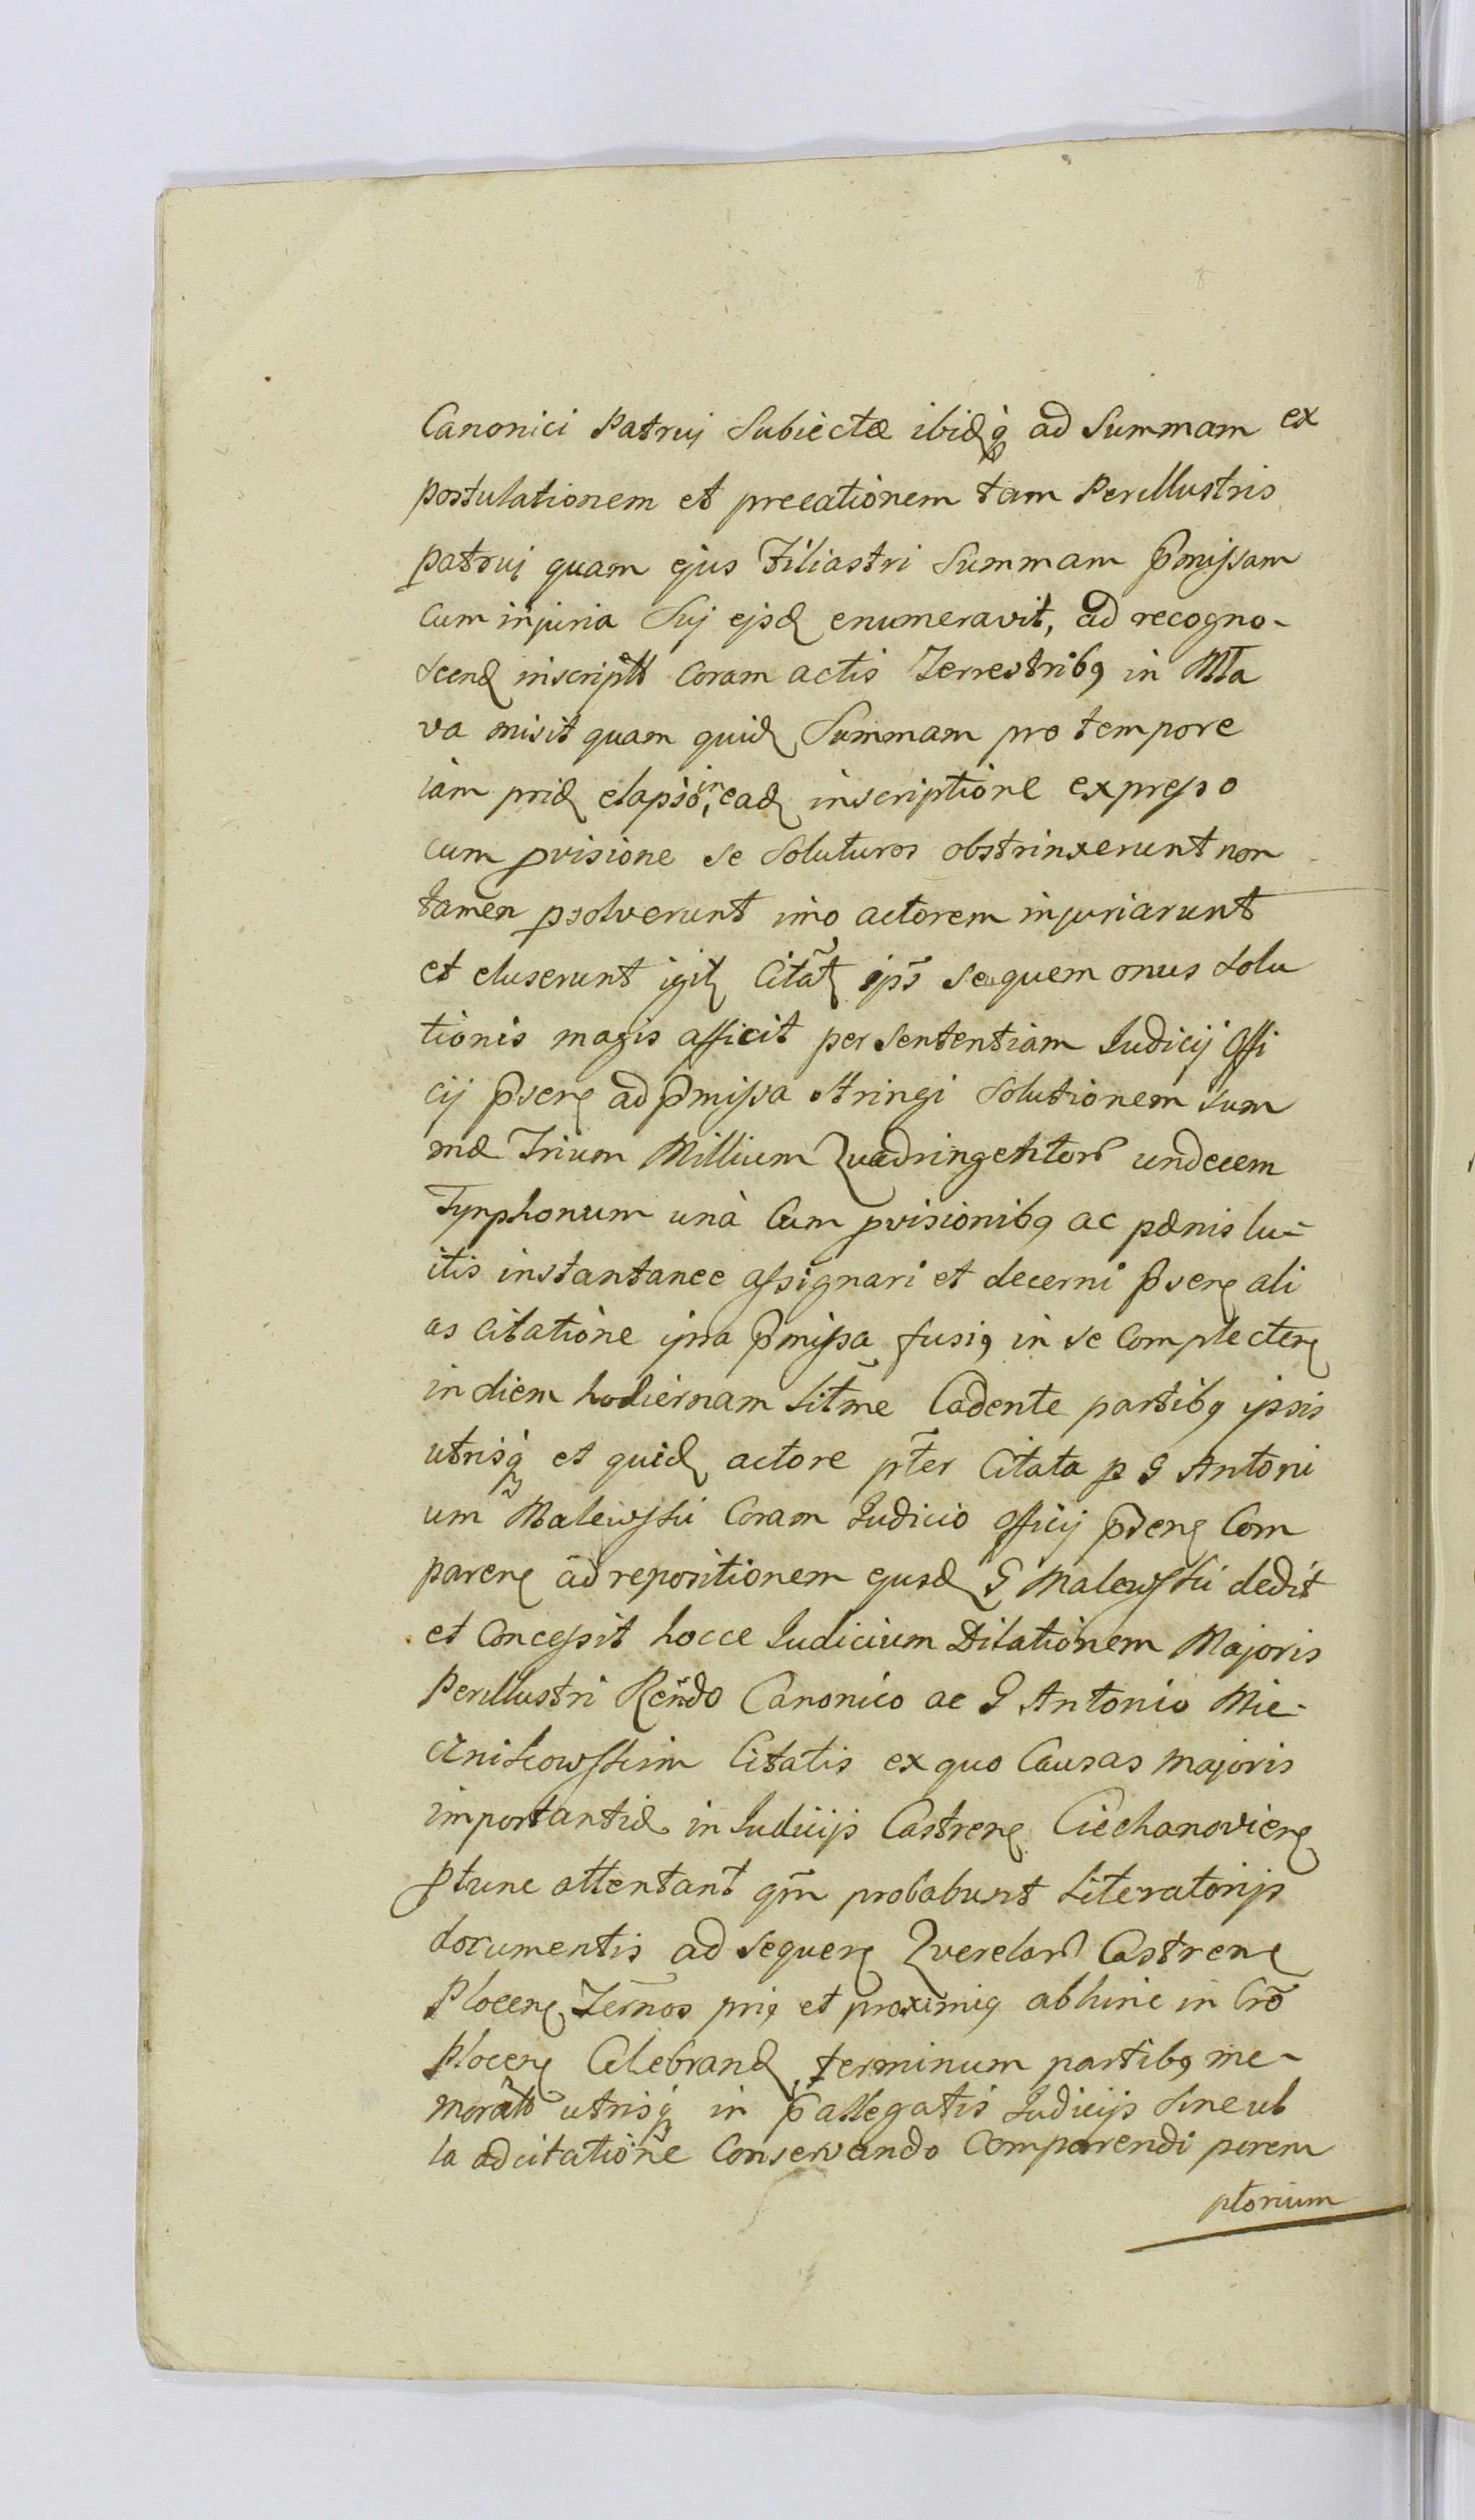 Canonici Patruj Subiectæ ibidq̀ȝ ad Summam ex
postulationem et precationem tam Perillustris
patruj quam ejus Filiastri Summam p̄missam
cum injuria Suj ejsd enumeravit, ad recogno-
scend inscriptt coram actis Terrestribq in Mła
va misit quam quid Summam pro tempore
iam prid elapso, in ead inscriptione expresso
cum pvisione se soluturos obstrinxerunt non
tamen psolverunt imo actorem injuriarunt
et eluserunt igit Citāt ips̄ seu quem onus solu
tionis magis afficit per Sententiam Iudicij Offi
cij p̄sens ad p̄missa stringi Solutionem Sum
mæ Trium Millium Quadringentor undecem
Tynphonum unà Cum pvisionibq ac pænis lu-
itis instantanee assignari et decerni p̄sens ali
as citatione ipsa p̄missa fusiq in se complectens
in diem hodiernam Litm̄e Cadente partibq ipsis
utrisq̀ȝ et quid actore pt̄er Citata p G Antoni
um Malewski Coram Iudicio Officij p̄sens Com
parens ad repositionem ejusd G Malewski dedit
et Concessit hocce Iudicium Dilationem Majoris
Perillustri Rend̄o Canonico ac G Antonio Mie-
cznikowskim Citatis ex quo Causas majoris
importantiæ in Iudicijs Castrens Ciechanoviens
ptunc attentant qm̄ probabunt Literatorijs
documentis ad sequens Querelar Castrens
Plocens Ter̄nos priq et proximiq abhinc in Crō
Plocens Celebrand terminum partibq me-
morāto utrisq̀ȝ in p̄allegatis Iudicijs Sine ul
la adcitatione Conservando Comparendi perem
ptorium